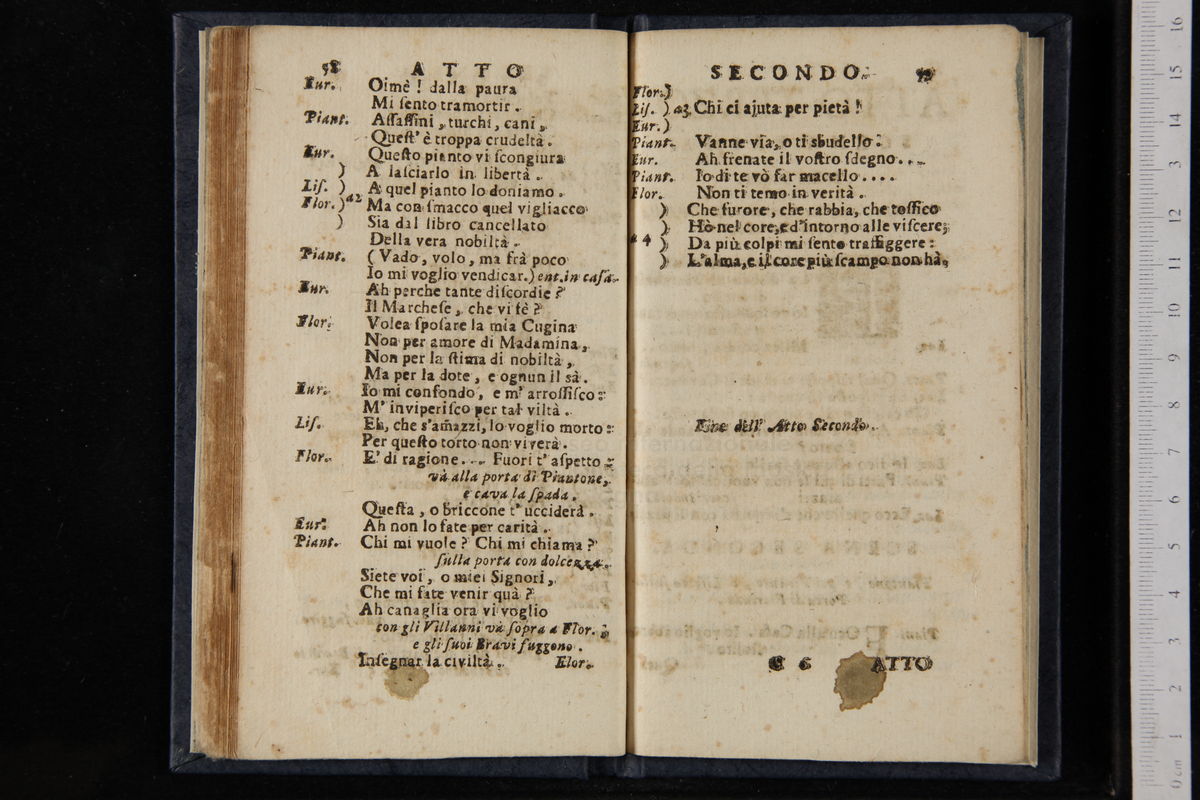 58 ATTO
Eur. Oimè ! dalla paura
Mi ſento tramortir .
Piant. Aſſaſſini , turchi , cani ,
Queſt' è troppa crudeltà .
Eur. Queſto pianto vi ſcongiura
) A laſciarlo in libertà .
Liſ. ) A quel pianto lo doniamo .
Flor. ) a2 Ma con ſmacco quel vigliacco
) Sia dal libro cancellato
Della vera nobiltà .
Piant. ( Vado , volo , ma frà poco
Io mi voglio vendicar. ) ent. in caſa.
Eur. Ah perche tante diſcordie ?
Il Marcheſe , che vi fè ?
Flor. Volea ſpoſare la mia Cugina
Non per amore di Madamina ,
Non per la ſtima di nobiltà ,
Ma per la dote , e ognun il sà .
Eur. Io mi confondo , e m' arroſſiſco :
M' inviperiſco per tal viltà .
Liſ. Eh, che s'am̃azzi, lo voglio morto :
Per queſto torto non viverà .
Flor. E' di ragione . . . Fuori t' aſpetto ;
và alla porta di Piantone,
e cava la ſpada .
Queſta , o briccone t' ucciderà .
Eur. Ah non lo fate per carità .
Piant. Chi mi vuole ? Chi mi chiama ?
ſulla porta con dolcezza.
Siete voi , o miei Signori ,
Che mi fate venir quà ?
Ah canaglia ora vi voglio
con gli Villanni và ſopra a Flor. ;
e gli ſuoi Bravi fuggono .
Inſegnar la civiltà . Flor.
SECONDO. 59
Flor. )
Liſ. ) a3 Chi ci ajuta per pietà !
Eur. )
Piant. Vanne via , o ti sbudello :
Eur. Ah frenate il voſtro ſdegno . . .
Piant. Io di te vò far macello . . . .
Flor. Non ti temo in verità .
) Che furore , che rabbia, che toſſico
) Hò nel core, ed'intorno alle viſcere;
a 4 ) Da più colpi mi ſento traffiggere :
) L'alma, e il core più ſcampo non hà,
Fine dell' Atto Secondo .
C 6 ATTO
16
15
14
13
12
11
10
9
8
7
6
5
4
3
2
1
0 cm